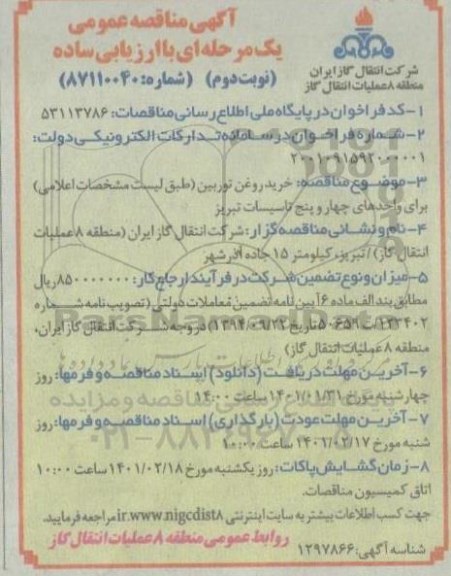 آگهی مناقصه عمومی
یک مرحله ای با ارزیابی ساده
(نوبت دوم) (شماره: ۸۷۱۱۰۰۴۰)
شرکت انتقال گاز ایران
منطقه ۸ عملیات انتقال گاز
۱-کد فراخوان در پایگاه ملی اطلاع رسانی مناقصات: ۵۳۱۱۳۷۸۶
۲-شماره فراخوان در سامانه تدارکات الکترونیکی دولت:
۲۰۰۱۰۹۱۵۹۲۰۰۰۰۰۱
۳-موضوع مناقصه: خرید روغن توربین (طبق لیست مشخصات اعلامی)
برای واحدهای چهار و پنج تاسیسات تبریز
۴-نام و نشانی مناقصه گزار: شرکت انتقال گاز ایران (منطقه ۸ عملیات
انتقال گاز) / تبریز، کیلومتر ۱۵ جاده آذرشهر
۵-میزان و نوع تضمین شرکت در فرآیند ارجاع کار: ۸۵۰۰۰۰۰۰۰ ریال
مطابق بند الف ماده ۶ آیین نامه تضمین معاملات دولتی (تصویب نامه شماره
۱۲۳۴۰۲/ت۵۰۶۵۹ه تاریخ ۱۳۹۴/۰۹/۲۲) در وجه شرکت انتقال گاز ایران،
منطقه ۸ عملیات انتقال گاز)
۶-آخرین مهلت دریافت (دانلود) اسناد مناقصه و فرمها: روز
چهارشنبه مورخ ۱۴۰۱/۰۱/۳۱ ساعت ۱۴:۰۰
۷-آخرین مهلت عودت (بارگذاری) اسناد مناقصه و فرمها: روز
شنبه مورخ ۱۴۰۱/۰۲/۱۷ ساعت ۱۰:۰۰
۸-زمان گشایش پاکات: روز یکشنبه مورخ ۱۴۰۱/۰۲/۱۸ ساعت ۱۰:۰۰
اتاق کمیسیون مناقصات.
جهت کسب اطلاعات بیشتر به سایت اینترنتی ir.www.nigcdist۸ مراجعه فرمایید.
روابط عمومی منطقه ۸ عملیات انتقال گاز
شناسه آگهی: ۱۲۹۷۸۶۶
ParsNamadData